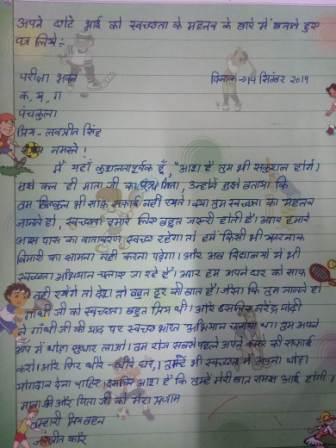 अपने छोटे भाई को स्वच्छता के महत्व के बारे में बताते हुए
पत्र लिखें :-
परीक्षा भवन
दिनांक - 14 सितंबर 2019
क, ख, ग
पंचकुला
प्रिय - लवप्रीत सिंह
नमस्ते !
मैं यहाँ कुशलतापूर्वक हूँ, "आशा है तुम भी सकुशल होंगे।
मुझे कल ही माता जी का पत्र मिला, उन्होंने मुझे बताया कि
तुम बिल्कुल भी साफ़ सफाई नहीं रखते। क्या तुम स्वच्छता का महत्व
जानते हो, स्वच्छता हमारे लिए बहुत जरूरी होती है। अगर हमारे
आस पास का वातावरण स्वच्छ रहेगा तो हमें किसी भी खतरनाक
बिमारी का सामना नहीं करना पड़ेगा। और अब विद्यालयों में भी
स्वच्छता अभियान चलाए जा रहे हैं। अगर हम अपने घर को साफ़
नहीं रखेंगे तो देश तो बहुत दूर की बात है। जैसा कि तुम जानते हो
गाँधी जी को स्वच्छता बहुत प्रिय थी। और इसलिए नरेंद्र मोदी
ने गाँधी जी की याद पर स्वच्छ भारत अभियान चलाया था। तुम अपने
में थोड़ा सुधार लाओ। तुम रोज सबसे पहले अपने कमरे की सफाई
करो। और फिर धीरे - धीरे घर, तुम्हें भी स्वच्छता में अपना थोड़ा
योगदान देना चाहिए। इसलिए आशा है कि तुम्हें मेरी बात समझ आई होगी।
माता जी और पिता जी को मेरा प्रणाम
तुम्हारी प्रिय बहन
कौर